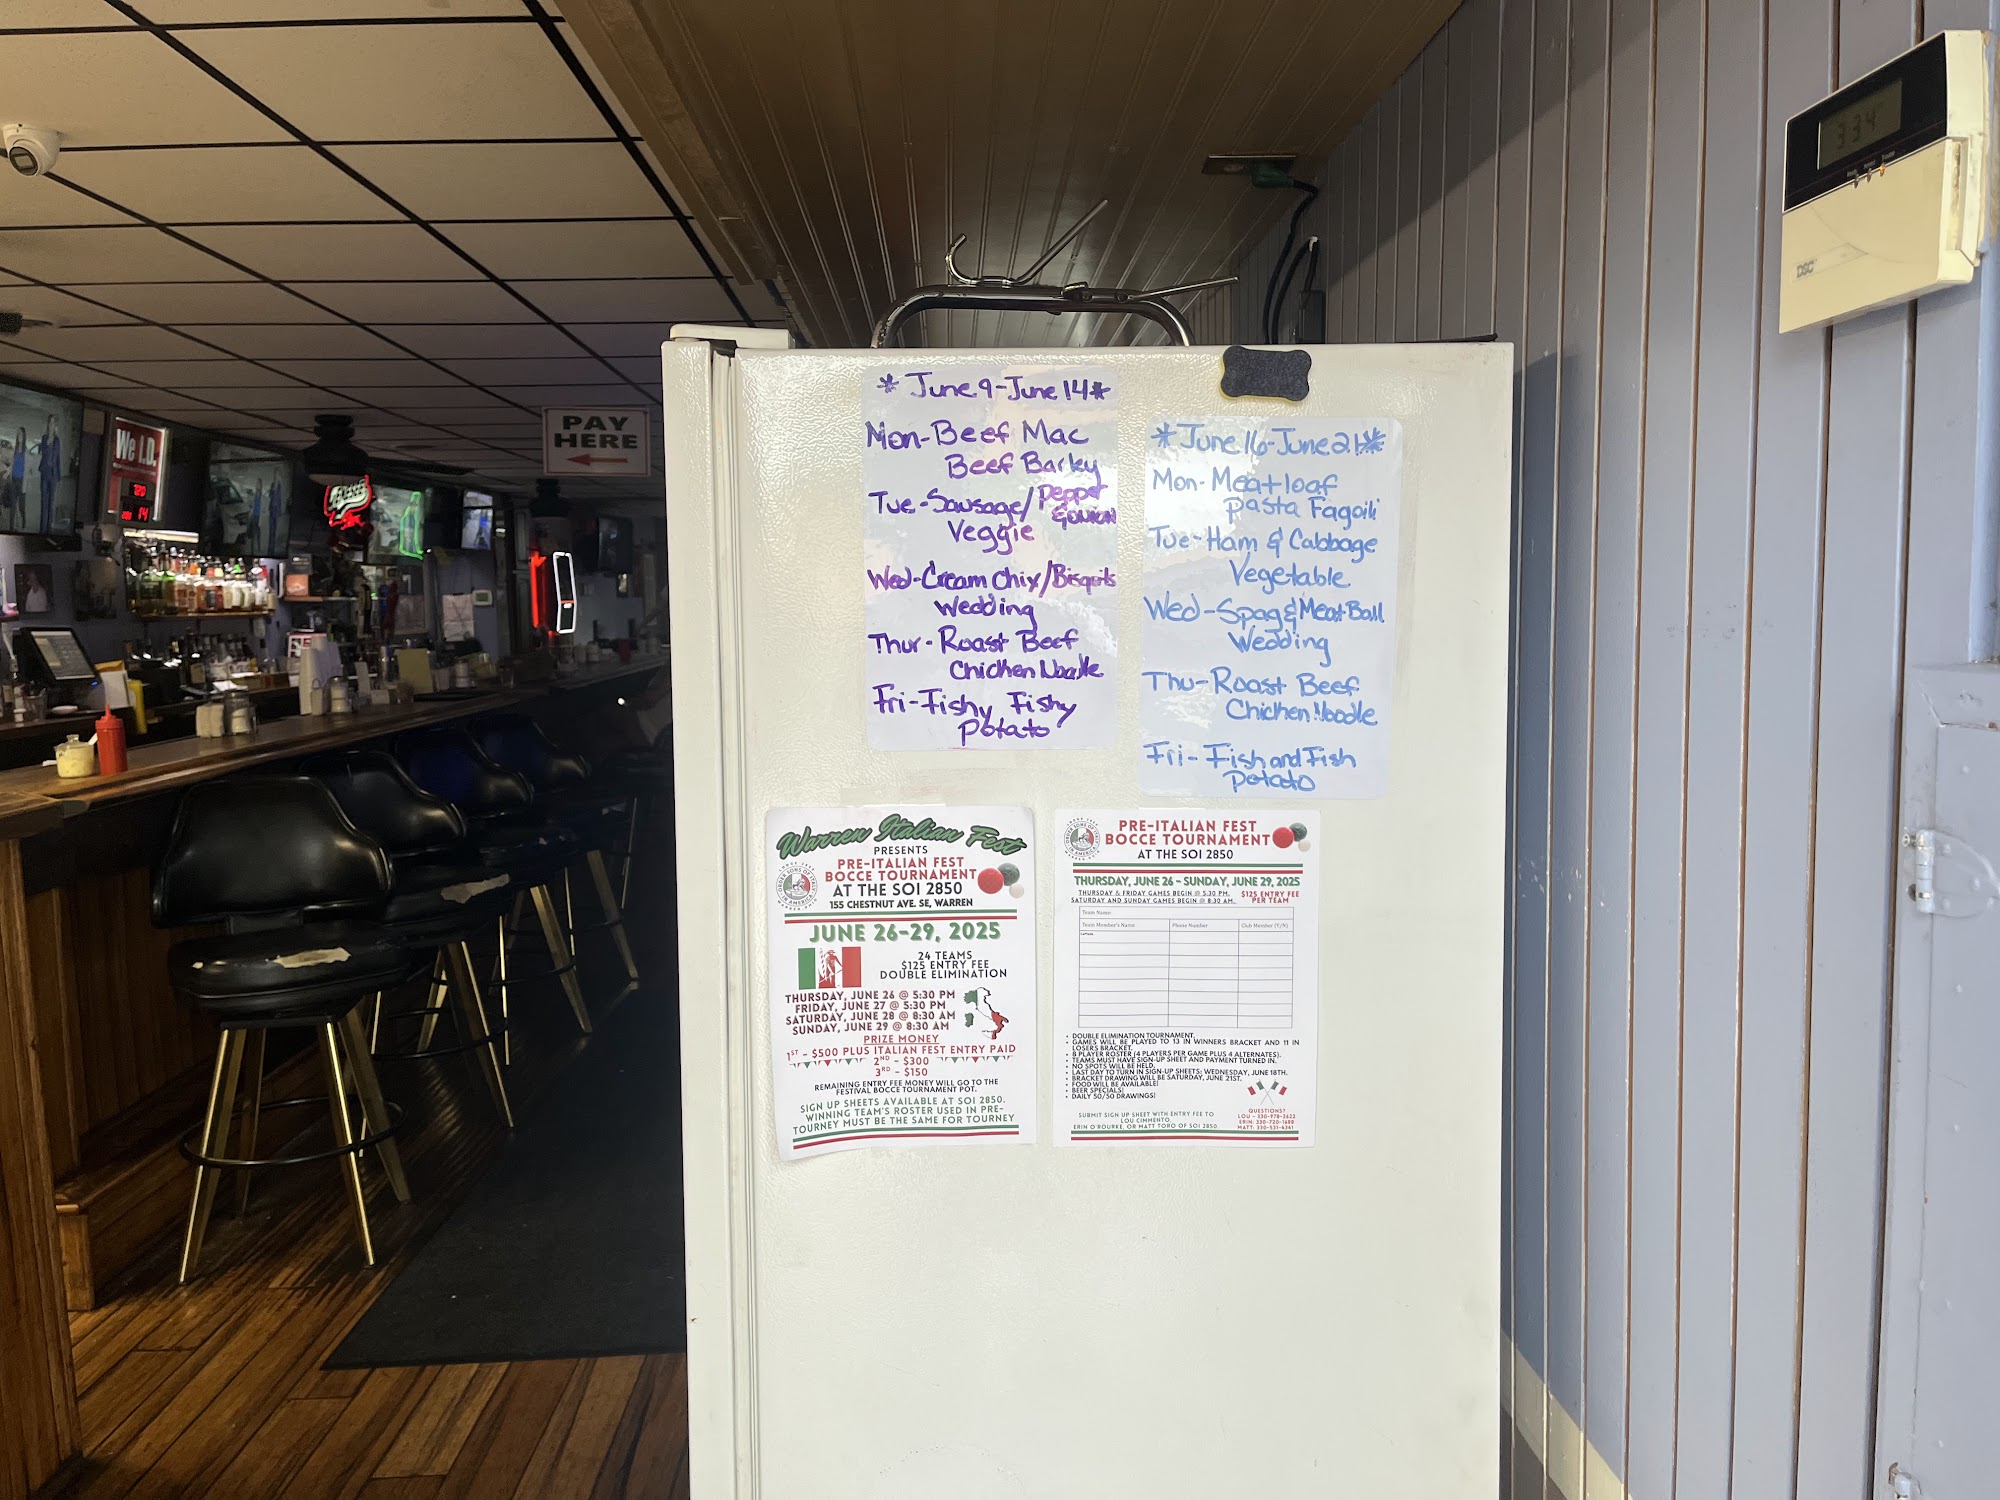 We I.D.
14
PAY
HERE
334
DSC
* June 9-June 14 *
Mon-Beef Mac
Beef Barley
Tue-Sausage/Pepper
&onion
Veggie
Wed-Cream Chix/Bisquits
Wedding
Thur-Roast Beef
Chicken Noodle
Fri-Fishy Fishy
Potato
* June 16-June 21 *
Mon-Meatloaf
Pasta Fagoili
Tue-Ham & Cabbage
Vegetable
Wed-Spag & Meat Ball
Wedding
Thu-Roast Beef
Chicken Noodle
Fri-Fish and Fish
Potato
Warren Italian Fest
PRESENTS
PRE-ITALIAN FEST
BOCCE TOURNAMENT
AT THE SOI 2850
155 CHESTNUT AVE. SE, WARREN
JUNE 26-29, 2025
24 TEAMS
$125 ENTRY FEE
DOUBLE ELIMINATION
THURSDAY, JUNE 26 @ 5:30 PM
FRIDAY, JUNE 27 @ 5:30 PM
SATURDAY, JUNE 28 @ 8:30 AM
SUNDAY, JUNE 29 @ 8:30 AM
PRIZE MONEY
1ST - $500 PLUS ITALIAN FEST ENTRY PAID
2ND - $300
3RD - $150
REMAINING ENTRY FEE MONEY WILL GO TO THE
FESTIVAL BOCCE TOURNAMENT POT.
SIGN UP SHEETS AVAILABLE AT SOI 2850.
WINNING TEAM'S ROSTER USED IN PRE-
TOURNEY MUST BE THE SAME FOR TOURNEY
PRE-ITALIAN FEST
BOCCE TOURNAMENT
AT THE SOI 2850
THURSDAY, JUNE 26 - SUNDAY, JUNE 29, 2025
THURSDAY & FRIDAY GAMES BEGIN @ 5:30 PM.
SATURDAY AND SUNDAY GAMES BEGIN @ 8:30 AM.
$125 ENTRY FEE
PER TEAM
Team Name:
Team Member's Name Phone Number Club Member (Y/N)
DOUBLE ELIMINATION TOURNAMENT.
GAMES WILL BE PLAYED TO 13 IN WINNERS BRACKET AND 11 IN
LOSERS BRACKET.
8 PLAYER ROSTER (4 PLAYERS PER GAME PLUS 4 ALTERNATES).
TEAMS MUST HAVE SIGN-UP SHEET AND PAYMENT TURNED IN.
NO SPOTS WILL BE HELD.
LAST DAY TO TURN IN SIGN-UP SHEETS: WEDNESDAY, JUNE 18TH.
BRACKET DRAWING WILL BE SATURDAY, JUNE 21ST.
FOOD WILL BE AVAILABLE!
BEER SPECIALS!
DAILY 50/50 DRAWINGS!
SUBMIT SIGN UP SHEET WITH ENTRY FEE TO
LOU CIMMENTO,
ERIN O'ROURKE, OR MATT TORO OF SOI 2850
QUESTIONS?
LOU - 330-978-2622
ERIN: 330-720-1688
MATT: 330-531-4341